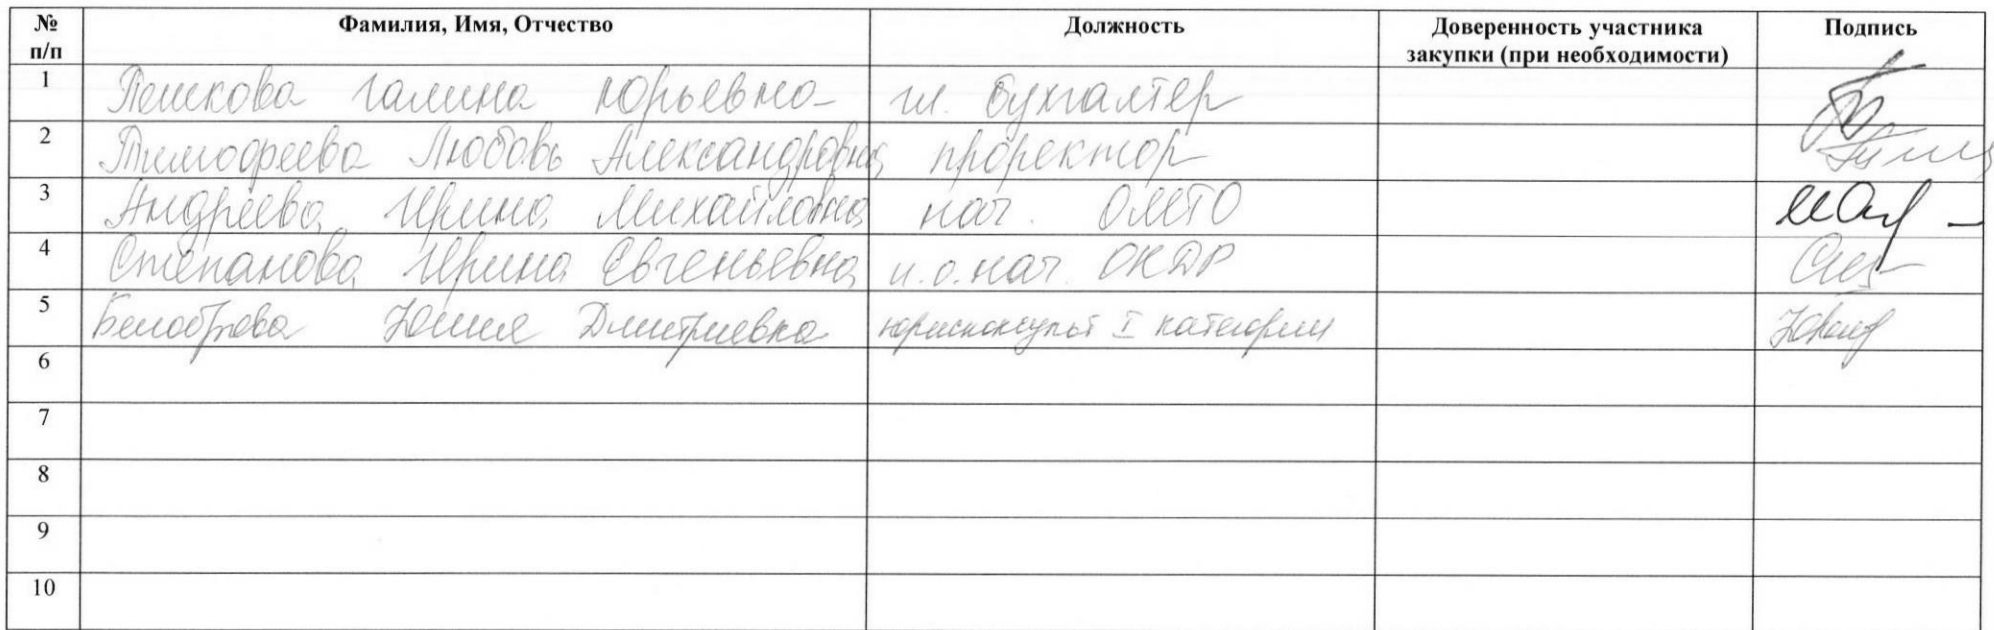 № п/п Фамилия, Имя, Отчество Должность Доверенность участника закупки (при необходимости) Подпись
1 Пешкова Галина Юрьевна гл. бухгалтер
2 Тимофеева Любовь Александровна проректор
3 Андреева Ирина Михайловна нач. ОМТО
4 Степанова Ирина Евгеньевна и.о. нач. ОКДР
5 Юлия Дмитриевна юрисконсульт I категории
6
7
8
9
10